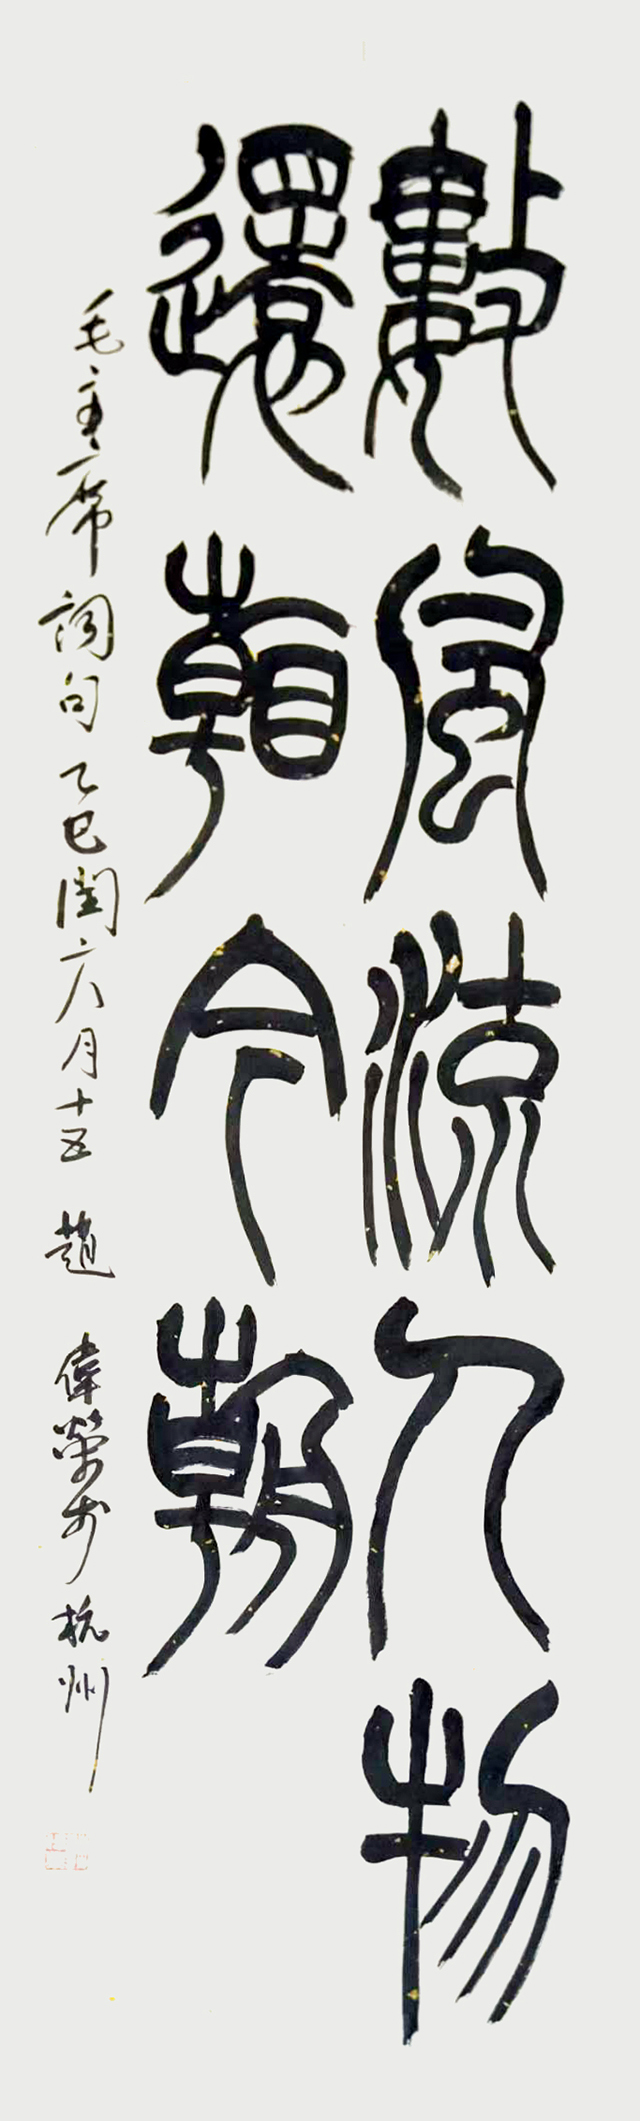 數風流人物
還看今朝
毛主席詞句乙巳閏六月十五 趙偉榮於杭州